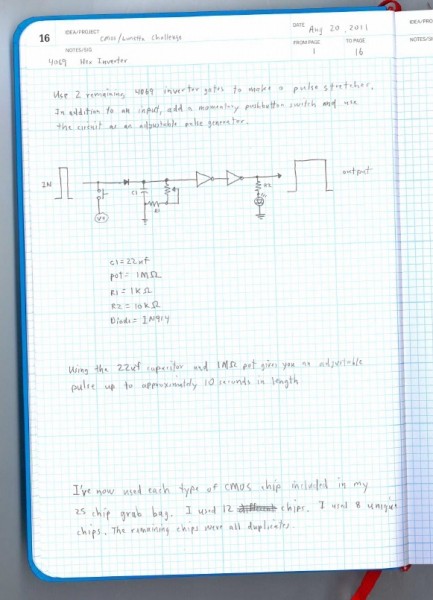 16
IDEA/PROJECT
CMOS/Lunetta Challenge
DATE Aug 20, 2011
NOTES/SIG
FROM PAGE 1
TO PAGE 16
4069 Hex Inverter
Use 2 remaining 4069 inverter gates to make a pulse stretcher.
In addition to an input, add a momentary pushbutton switch and use
the circuit as an adjustable pulse generator.
IN
C1
R1
V+
R2
output
C1=22uf
Pot= 1MΩ
R1= 1KΩ
R2= 10KΩ
Diode= 1N914
Using the 22uf capacitor and 1MΩ pot gives you an adjustable
pulse up to approximately 10 seconds in length
I've now used each type of CMOS chip included in my
25 chip grab bag. I used 12 chips. I used 8 unique
chips. The remaining chips were all duplicates.
IDEA/PROJ
NOTES/SI